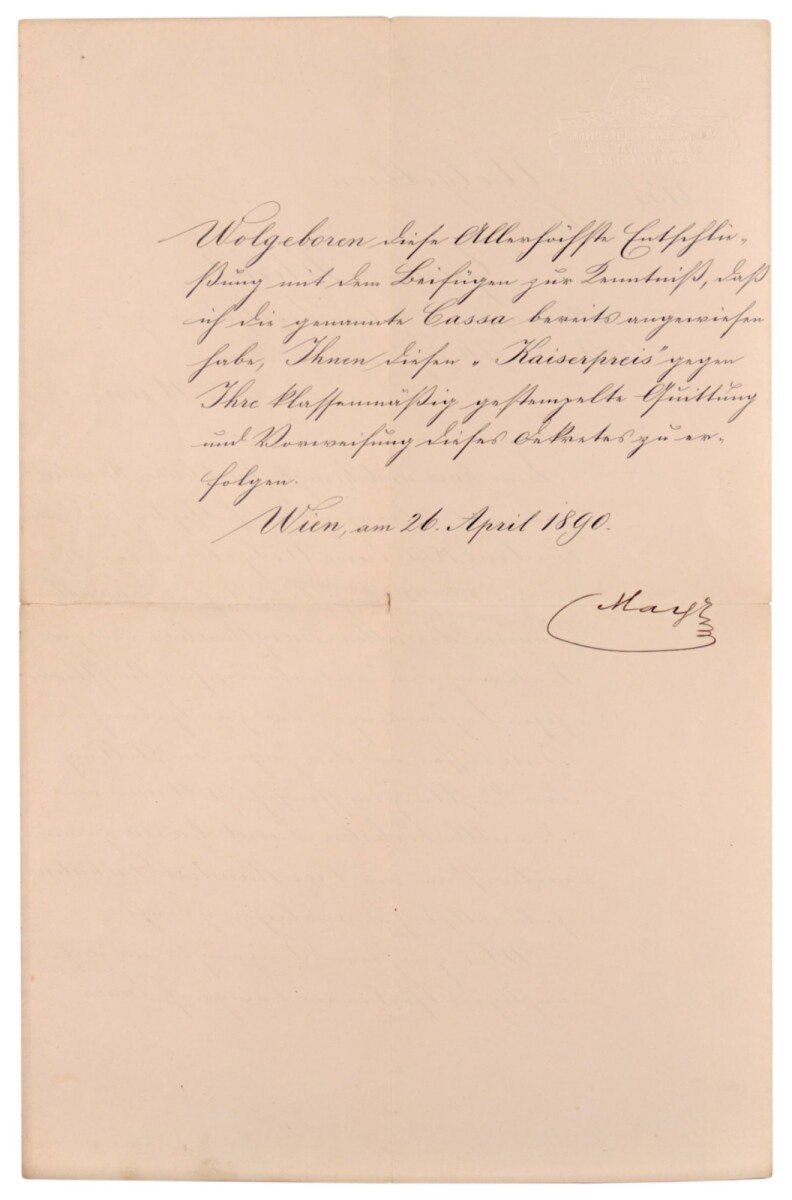 Wolgeboren diese Allerhöchste Entschlie-
ßung mit dem Beifügen zur Kenntniß, daß
ich die genannte Cassa bereits angewiesen
habe, Ihnen diesen „Kaiserpreis" gegen
Ihre klassenmäßig gestempelte Quittung
und Vorweisung dieses Dekretes zu er-
folgen.
Wien, am 26. April 1890.